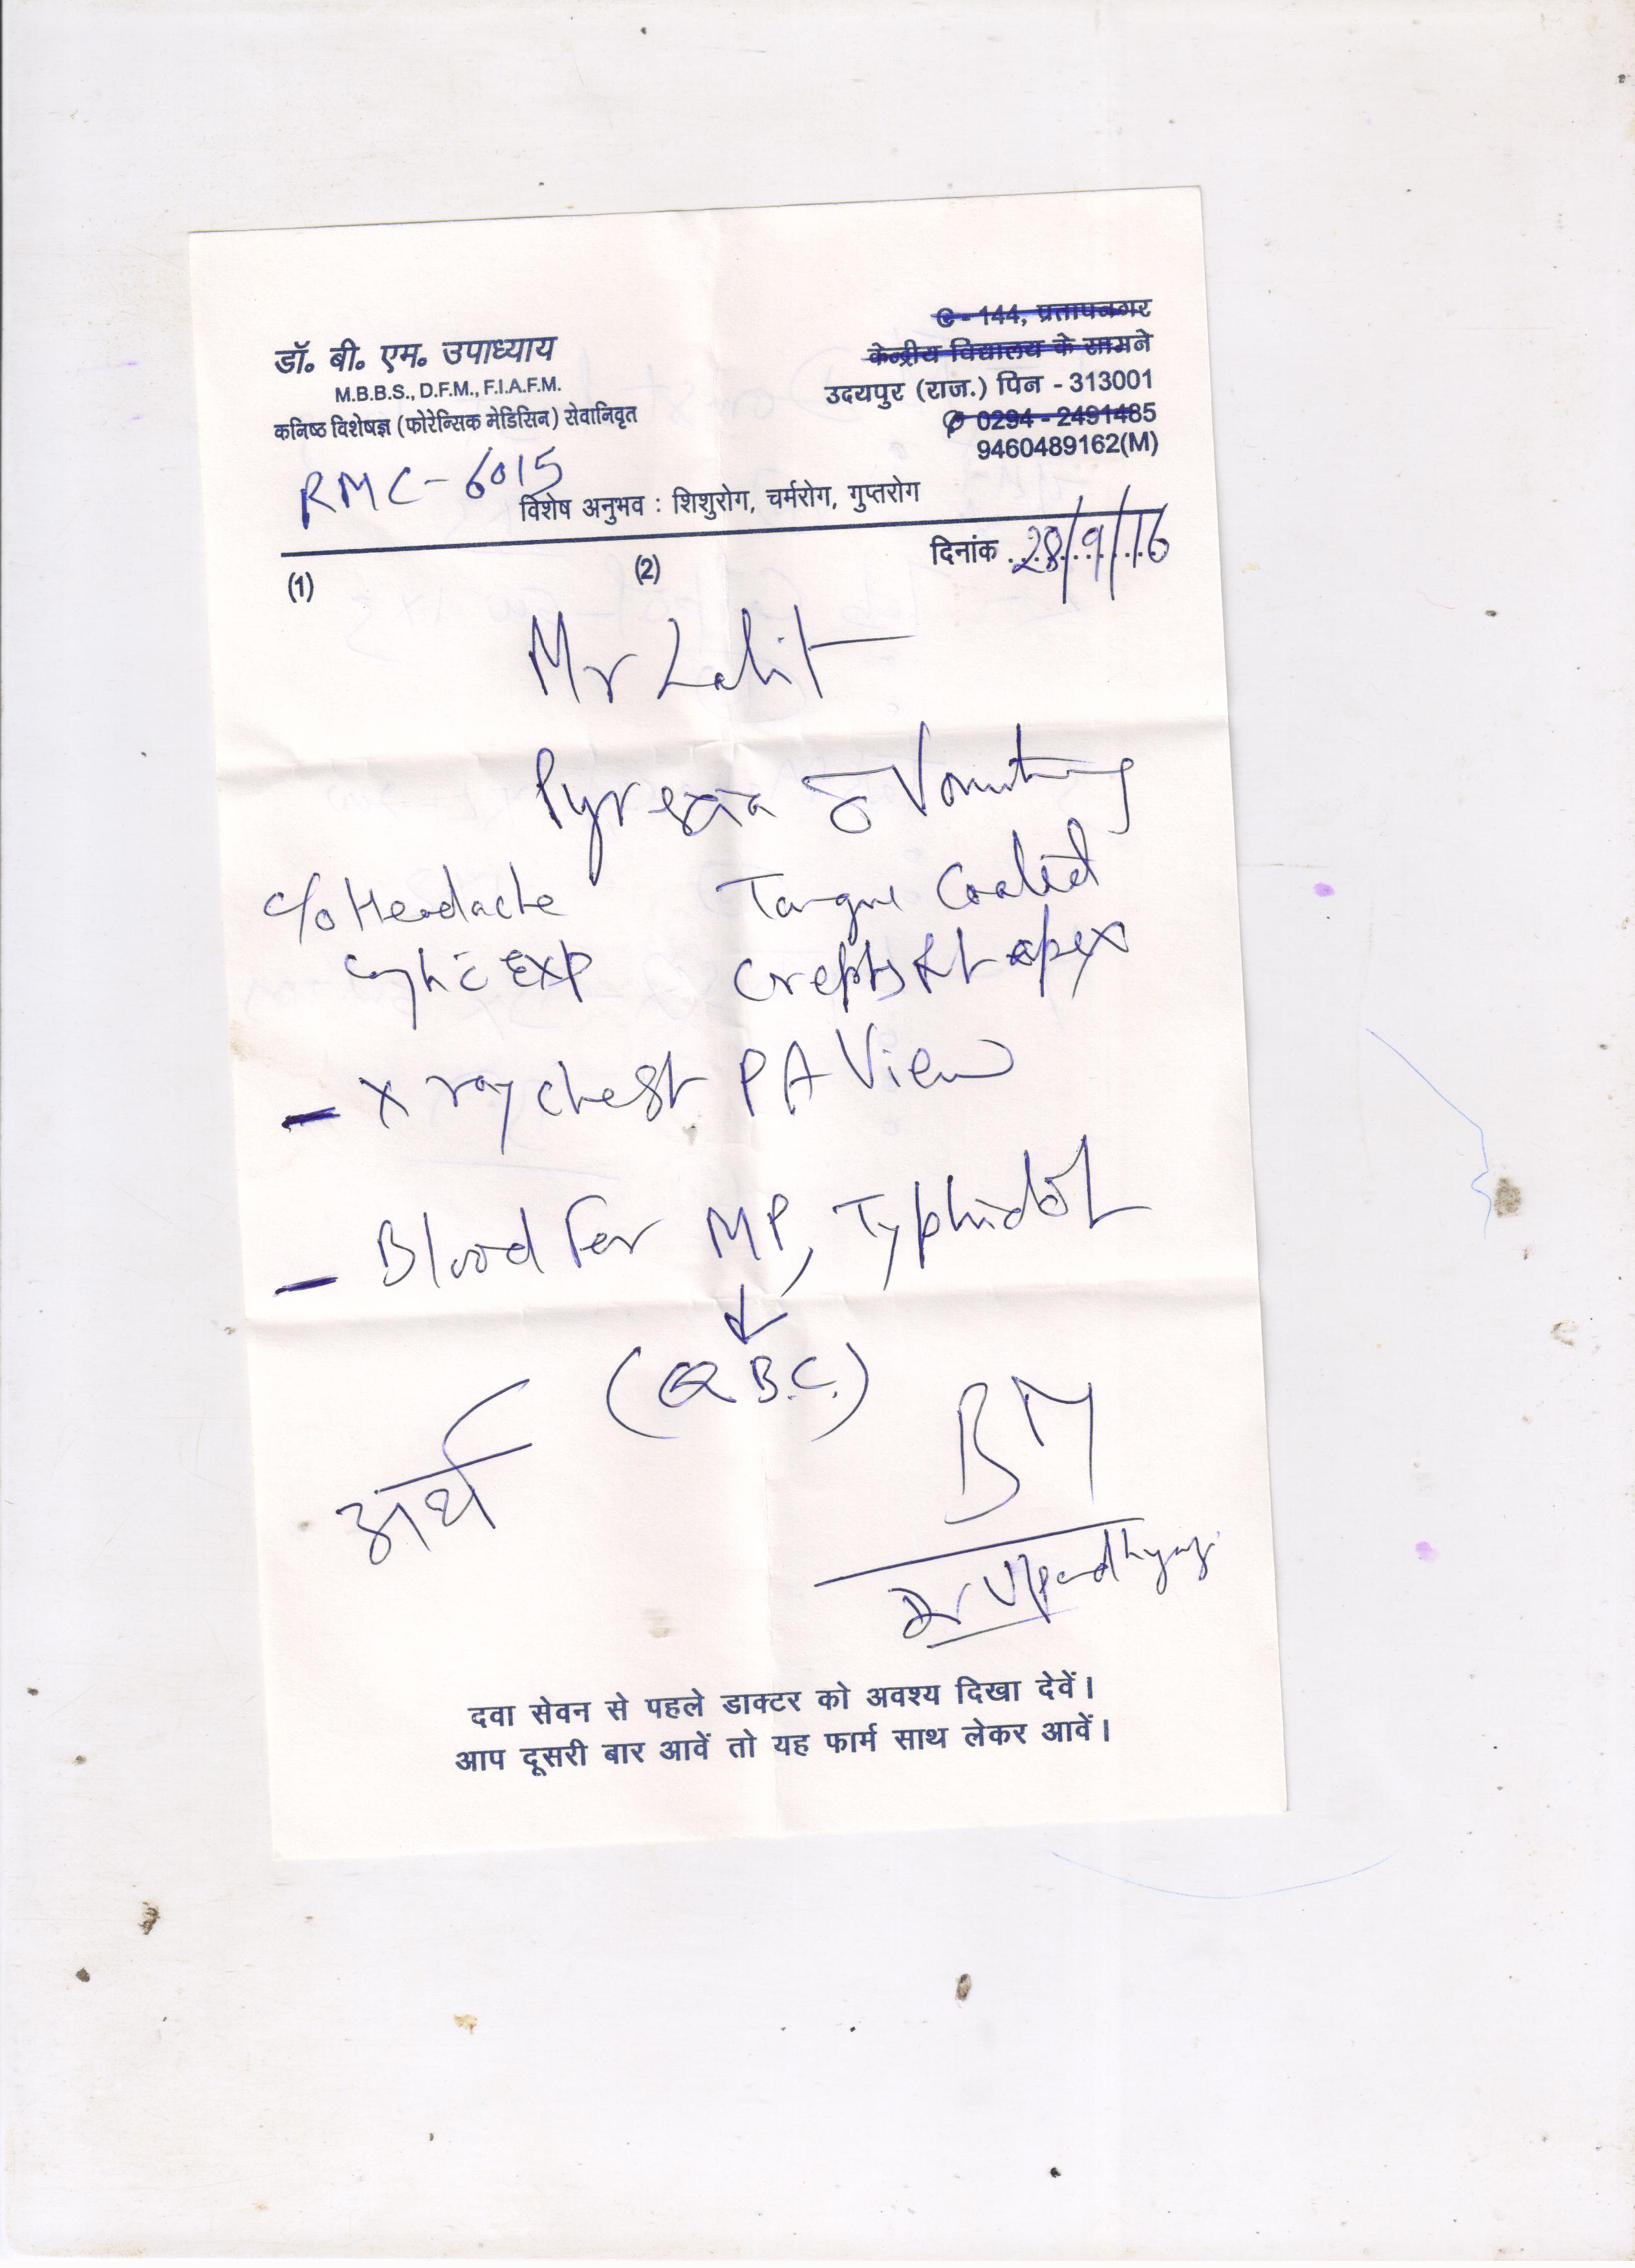 डॉ. बी. एम. उपाध्याय
M.B.B.S., D.F.M., F.I.A.F.M.
कनिष्ठ विशेषज्ञ (फोरेन्सिक मेडिसिन) सेवानिवृत
RMC-6015
C - 144, प्रतापनगर
केन्द्रीय विद्यालय के सामने
उदयपुर (राज.) पिन - 313001
0294 - 2491485
9460489162(M)
विशेष अनुभव : शिशुरोग, चर्मरोग, गुप्तरोग
दिनांक 28/9/16
(1) (2)
Mr Lalit
Pyrexia c̄ Vomiting
c/o Headache Tongue Coated
c̄ EXP Crepts Rt apex
- X ray chest PA View
- Blood for MP, Typhidot
(Q.B.C.)
अर्थ
BM
Dr Upadhyay
दवा सेवन से पहले डाक्टर को अवश्य दिखा देवें।
आप दूसरी बार आवें तो यह फार्म साथ लेकर आवें।